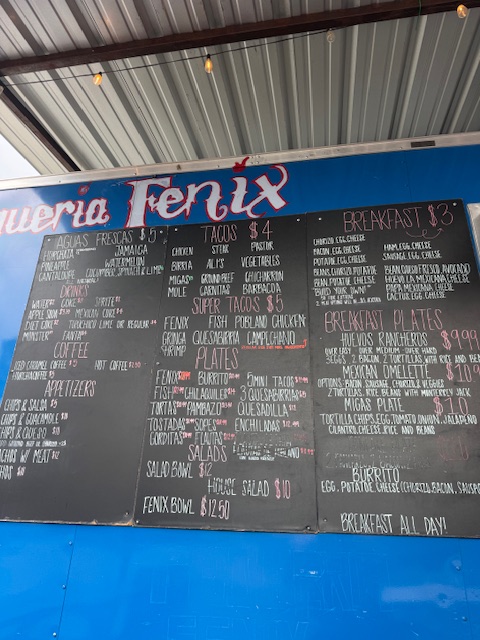 queria Fenix
AGUAS FRESCAS $5
HORCHATA JAMAICA
PINEAPPLE WATERMELON
CANTALOUPE CUCUMBER, SPINACH & LIME
DRINKS
WATER COKE SPRITE
APPLE SIDRAL MEXICAN COKE
DIET COKE TOPOCHICO LIME OR REGULAR
MONSTER FANTA
COFFEE
ICED CARAMEL COFFEE $5 HOT COFFEE
APPETIZERS
CHIPS & SALSA
CHIPS & GUACAMOLE
CHIPS & QUESO
NACHOS W/ MEAT $12
TACOS $4
CHICKEN STEAK PASTOR
BIRRIA ALPS VEGETABLES
MIGAS GROUND BEEF CHICHARRON
MULE CARNITAS BARBACOA
SUPER TACOS $5
FENIX FISH POBLANO CHICKEN
GRINGA QUESABIRRIA CAMPECHANO
SHRIMP
PLATES
FENIX BURRITO 5 MINI TACOS
FISH CHILAQUILES 3 QUESABIRRIAS
TORTAS PAMBAZO QUESADILLA
TOSTADAS SOPES ENCHILADAS
GORDITAS FLAUTAS
SALADS
SALAD BOWL $12
HOUSE SALAD $10
FENIX BOWL $12.50
BREAKFAST $3
CHORIZO, EGG, CHEESE HAM, EGG, CHEESE
BACON, EGG, CHEESE SAUSAGE, EGG, CHEESE
POTATOE, EGG, CHEESE
BEAN, CHORIZO, POTATOE BEAN, QUESO FRESCO, AVOCADO
BEAN, POTATOE, CHEESE HUEVO A LA MEXICANA, CHEESE
"BUILD YOUR OWN" PAPA MEXICANA CHEESE
CACTUS, EGG, CHEESE
BREAKFAST PLATES
HUEVOS RANCHEROS $9.99
OVER EASY OVER MEDIUM OVER HARD
SIDES: BACON, 2 TORTILLAS WITH RICE AND BEA
MEXICAN OMELETTE $10
OPTIONS: BACON, SAUSAGE, CHORIZO & VEGGIES
2 TORTILLAS, RICE, BEANS WITH MONTEREY JACK
MIGAS PLATE $10
TORTILLA CHIPS, EGG, TOMATO, ONION, JALAPENO
CILANTRO, CHEESE, RICE AND BEANS
BURRITO
EGG, POTATOE, CHEESE (CHORIZO, BACON, SAUSAG
BREAKFAST ALL DAY!